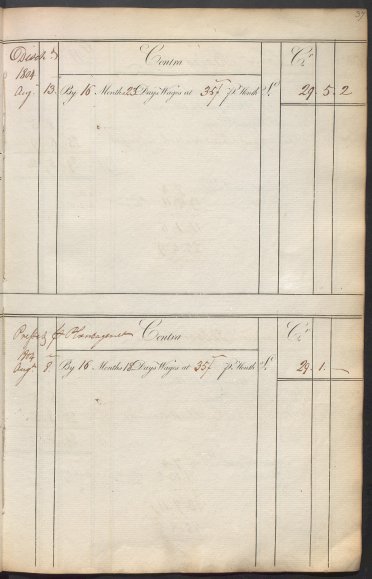 39
Disch.d Contra Cr
1804
Aug 13. By 16 Months 23 Days Wages at 35/ pr. Month £ 29. 5. 2
Contra Cr
1804
Augt 8 By 16 Months 18 Days Wages at 35/ pr. Month £ 29. 1. —